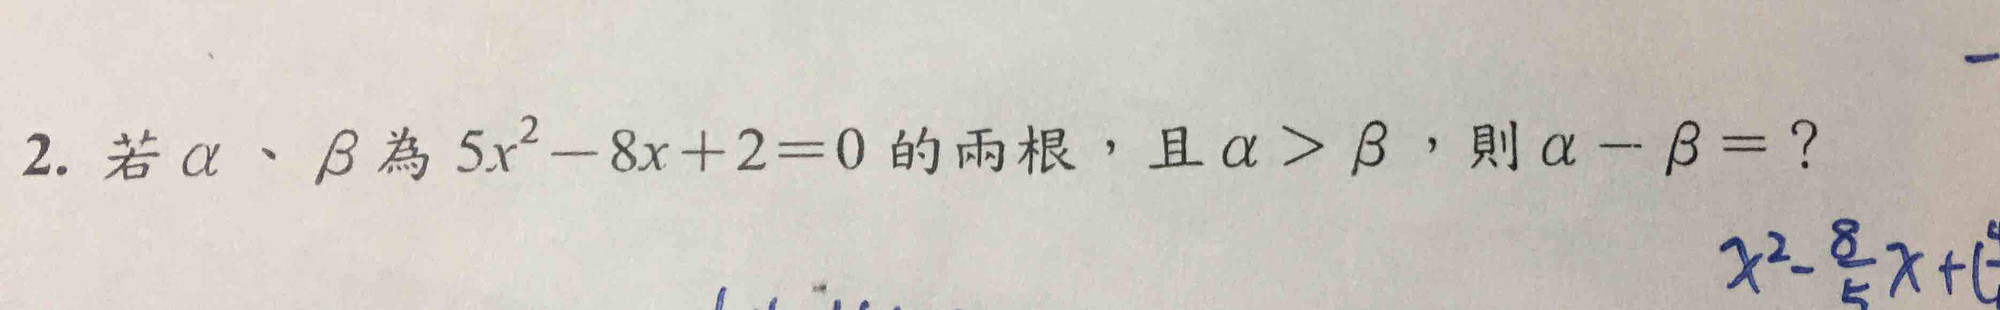 2. 若 α、β 為 5x²－8x＋2＝0 的兩根，且 α＞β，則 α－β＝？
x²-8/5x+(